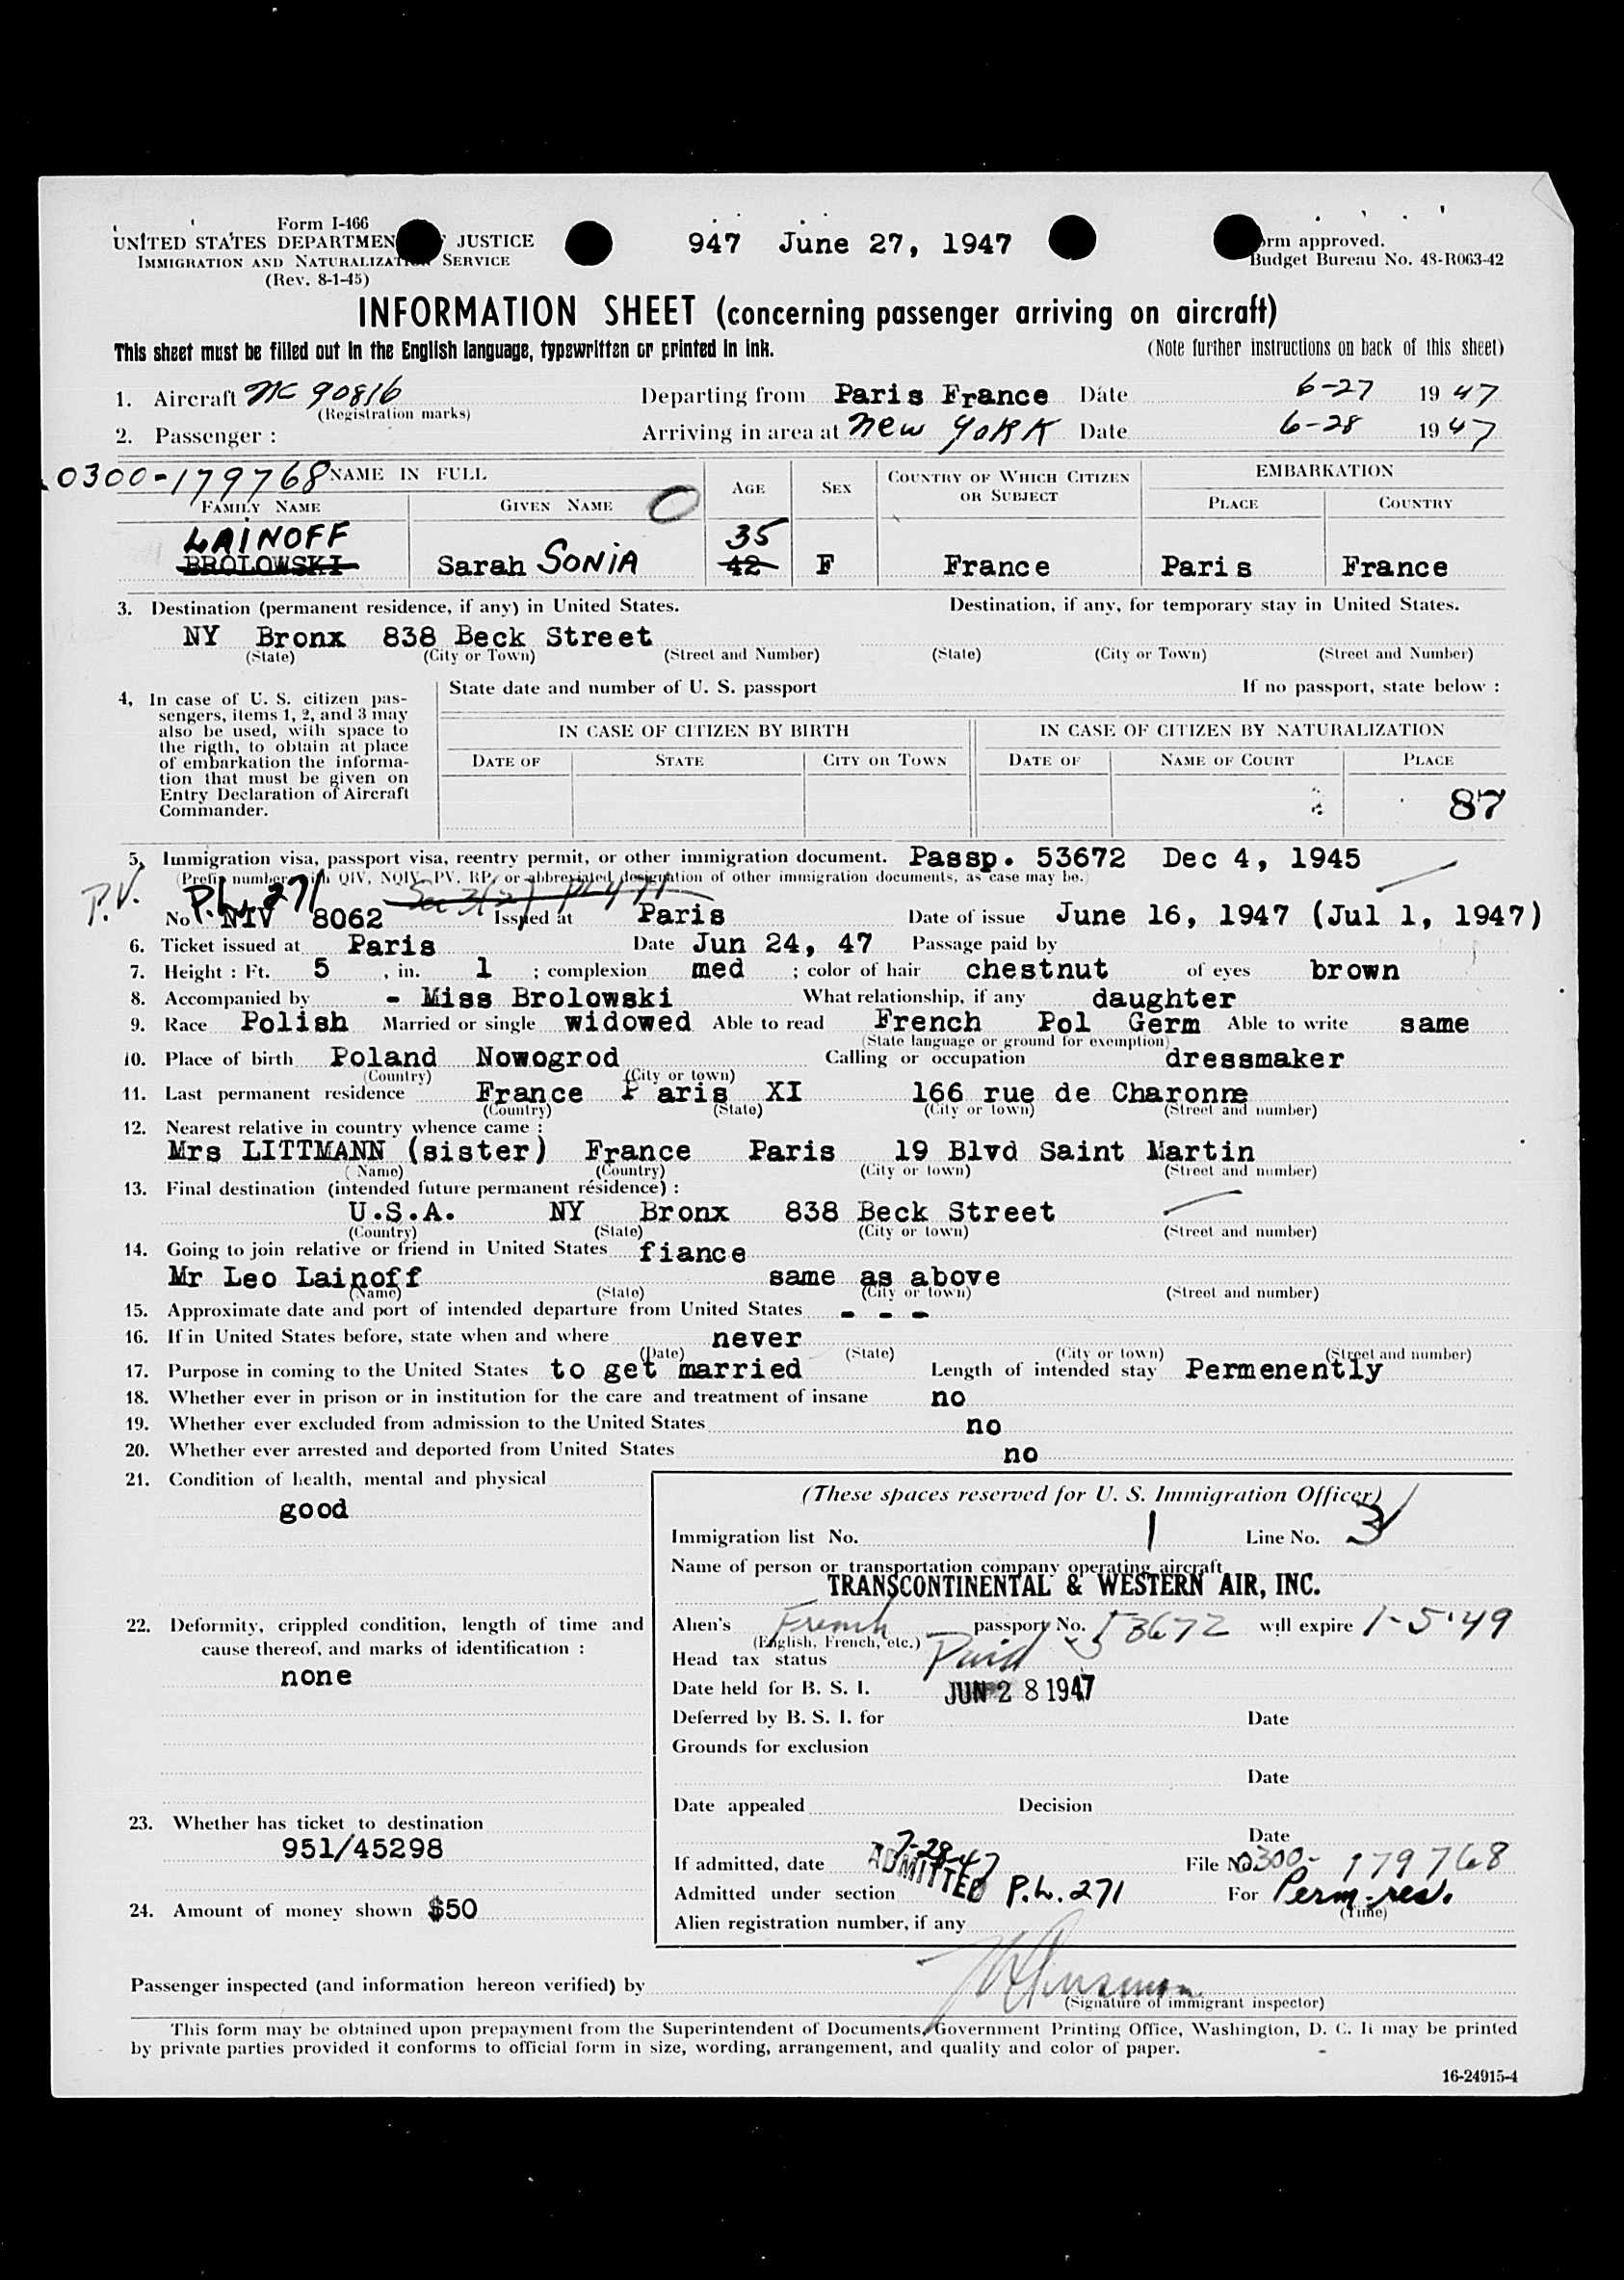 Form I-466
UNITED STATES DEPARTMEN JUSTICE
IMMIGRATION AND NATURALIZATION SERVICE
(Rev. 8-1-45)
947 June 27, 1947
orm approved.
Budget Bureau No. 43-R063-42
INFORMATION SHEET (concerning passenger arriving on aircraft)
This sheet must be filled out in the English language, typewritten or printed in ink. (Note further instructions on back of this sheet)
1. Aircraft NC 90816 Departing from Paris France Date 6-27 1947
(Registration marks)
2. Passenger : Arriving in area at New YORK Date 6-28 1947
0300-179768 NAME IN FULL AGE SEX COUNTRY OF WHICH CITIZEN OR SUBJECT EMBARKATION
FAMILY NAME GIVEN NAME PLACE COUNTRY
LAINOFF 35
BROLOWSKI Sarah SONIA 42 F France Paris France
3. Destination (permanent residence, if any) in United States. Destination, if any, for temporary stay in United States.
NY Bronx 838 Beck Street
(State) (City or Town) (Street and Number) (State) (City or Town) (Street and Number)
4, In case of U. S. citizen pas-
sengers, items 1, 2, and 3 may
also be used, with space to
the rigth, to obtain at place
of embarkation the informa-
tion that must be given on
Entry Declaration of Aircraft
Commander.
State date and number of U. S. passport If no passport, state below :
IN CASE OF CITIZEN BY BIRTH IN CASE OF CITIZEN BY NATURALIZATION
DATE OF STATE CITY OR TOWN DATE OF NAME OF COURT PLACE
87
5, Immigration visa, passport visa, reentry permit, or other immigration document. Passp. 53672 Dec 4, 1945
(Prefix number with QIV, NQIV, PV, RP, or abbreviated designation of other immigration documents, as case may be.)
P.V. P.L. 271
No NIV 8062 Issued at Paris Date of issue June 16, 1947 (Jul 1, 1947)
6. Ticket issued at Paris Date Jun 24, 47 Passage paid by
7. Height : Ft. 5 , in. 1 ; complexion med ; color of hair chestnut of eyes brown
8. Accompanied by - Miss Brolowski What relationship, if any daughter
9. Race Polish Married or single widowed Able to read French Pol Germ Able to write same
(State language or ground for exemption)
10. Place of birth Poland Nowogrod Calling or occupation dressmaker
(Country) (City or town)
11. Last permanent residence France Paris XI 166 rue de Charonne
(Country) (State) (City or town) (Street and number)
12. Nearest relative in country whence came :
Mrs LITTMANN (sister) France Paris 19 Blvd Saint Martin
(Name) (Country) (City or town) (Street and number)
13. Final destination (intended future permanent résidence) :
U.S.A. NY Bronx 838 Beck Street
(Country) (State) (City or town) (Street and number)
14. Going to join relative or friend in United States fiance
Mr Leo Lainoff same as above
(Name) (State) (City or town) (Street and number)
15. Approximate date and port of intended departure from United States - - -
16. If in United States before, state when and where never
(Date) (State) (City or town) (Street and number)
17. Purpose in coming to the United States to get married Length of intended stay Permenently
18. Whether ever in prison or in institution for the care and treatment of insane no
19. Whether ever excluded from admission to the United States no
20. Whether ever arrested and deported from United States no
21. Condition of health, mental and physical
good
22. Deformity, crippled condition, length of time and
cause thereof, and marks of identification :
none
23. Whether has ticket to destination
951/45298
24. Amount of money shown $50
(These spaces reserved for U. S. Immigration Officer)
Immigration list No. 1 Line No. 3
Name of person or transportation company operating aircraft
TRANSCONTINENTAL & WESTERN AIR, INC.
Alien's French passport No. 53672 will expire 1-5-49
(English, French, etc.)
Head tax status Paid
Date held for B. S. I. JUN 28 1947
Deferred by B. S. I. for Date
Grounds for exclusion
Date
Date appealed Decision
Date
If admitted, date 7-28-47 File No. 0300-179768
ADMITTED
Admitted under section P.L. 271 For Perm-res.
(Time)
Alien registration number, if any
Passenger inspected (and information hereon verified) by
(Signature of immigrant inspector)
This form may be obtained upon prepayment from the Superintendent of Documents, Government Printing Office, Washington, D. C. It may be printed
by private parties provided it conforms to official form in size, wording, arrangement, and quality and color of paper.
16-24915-4